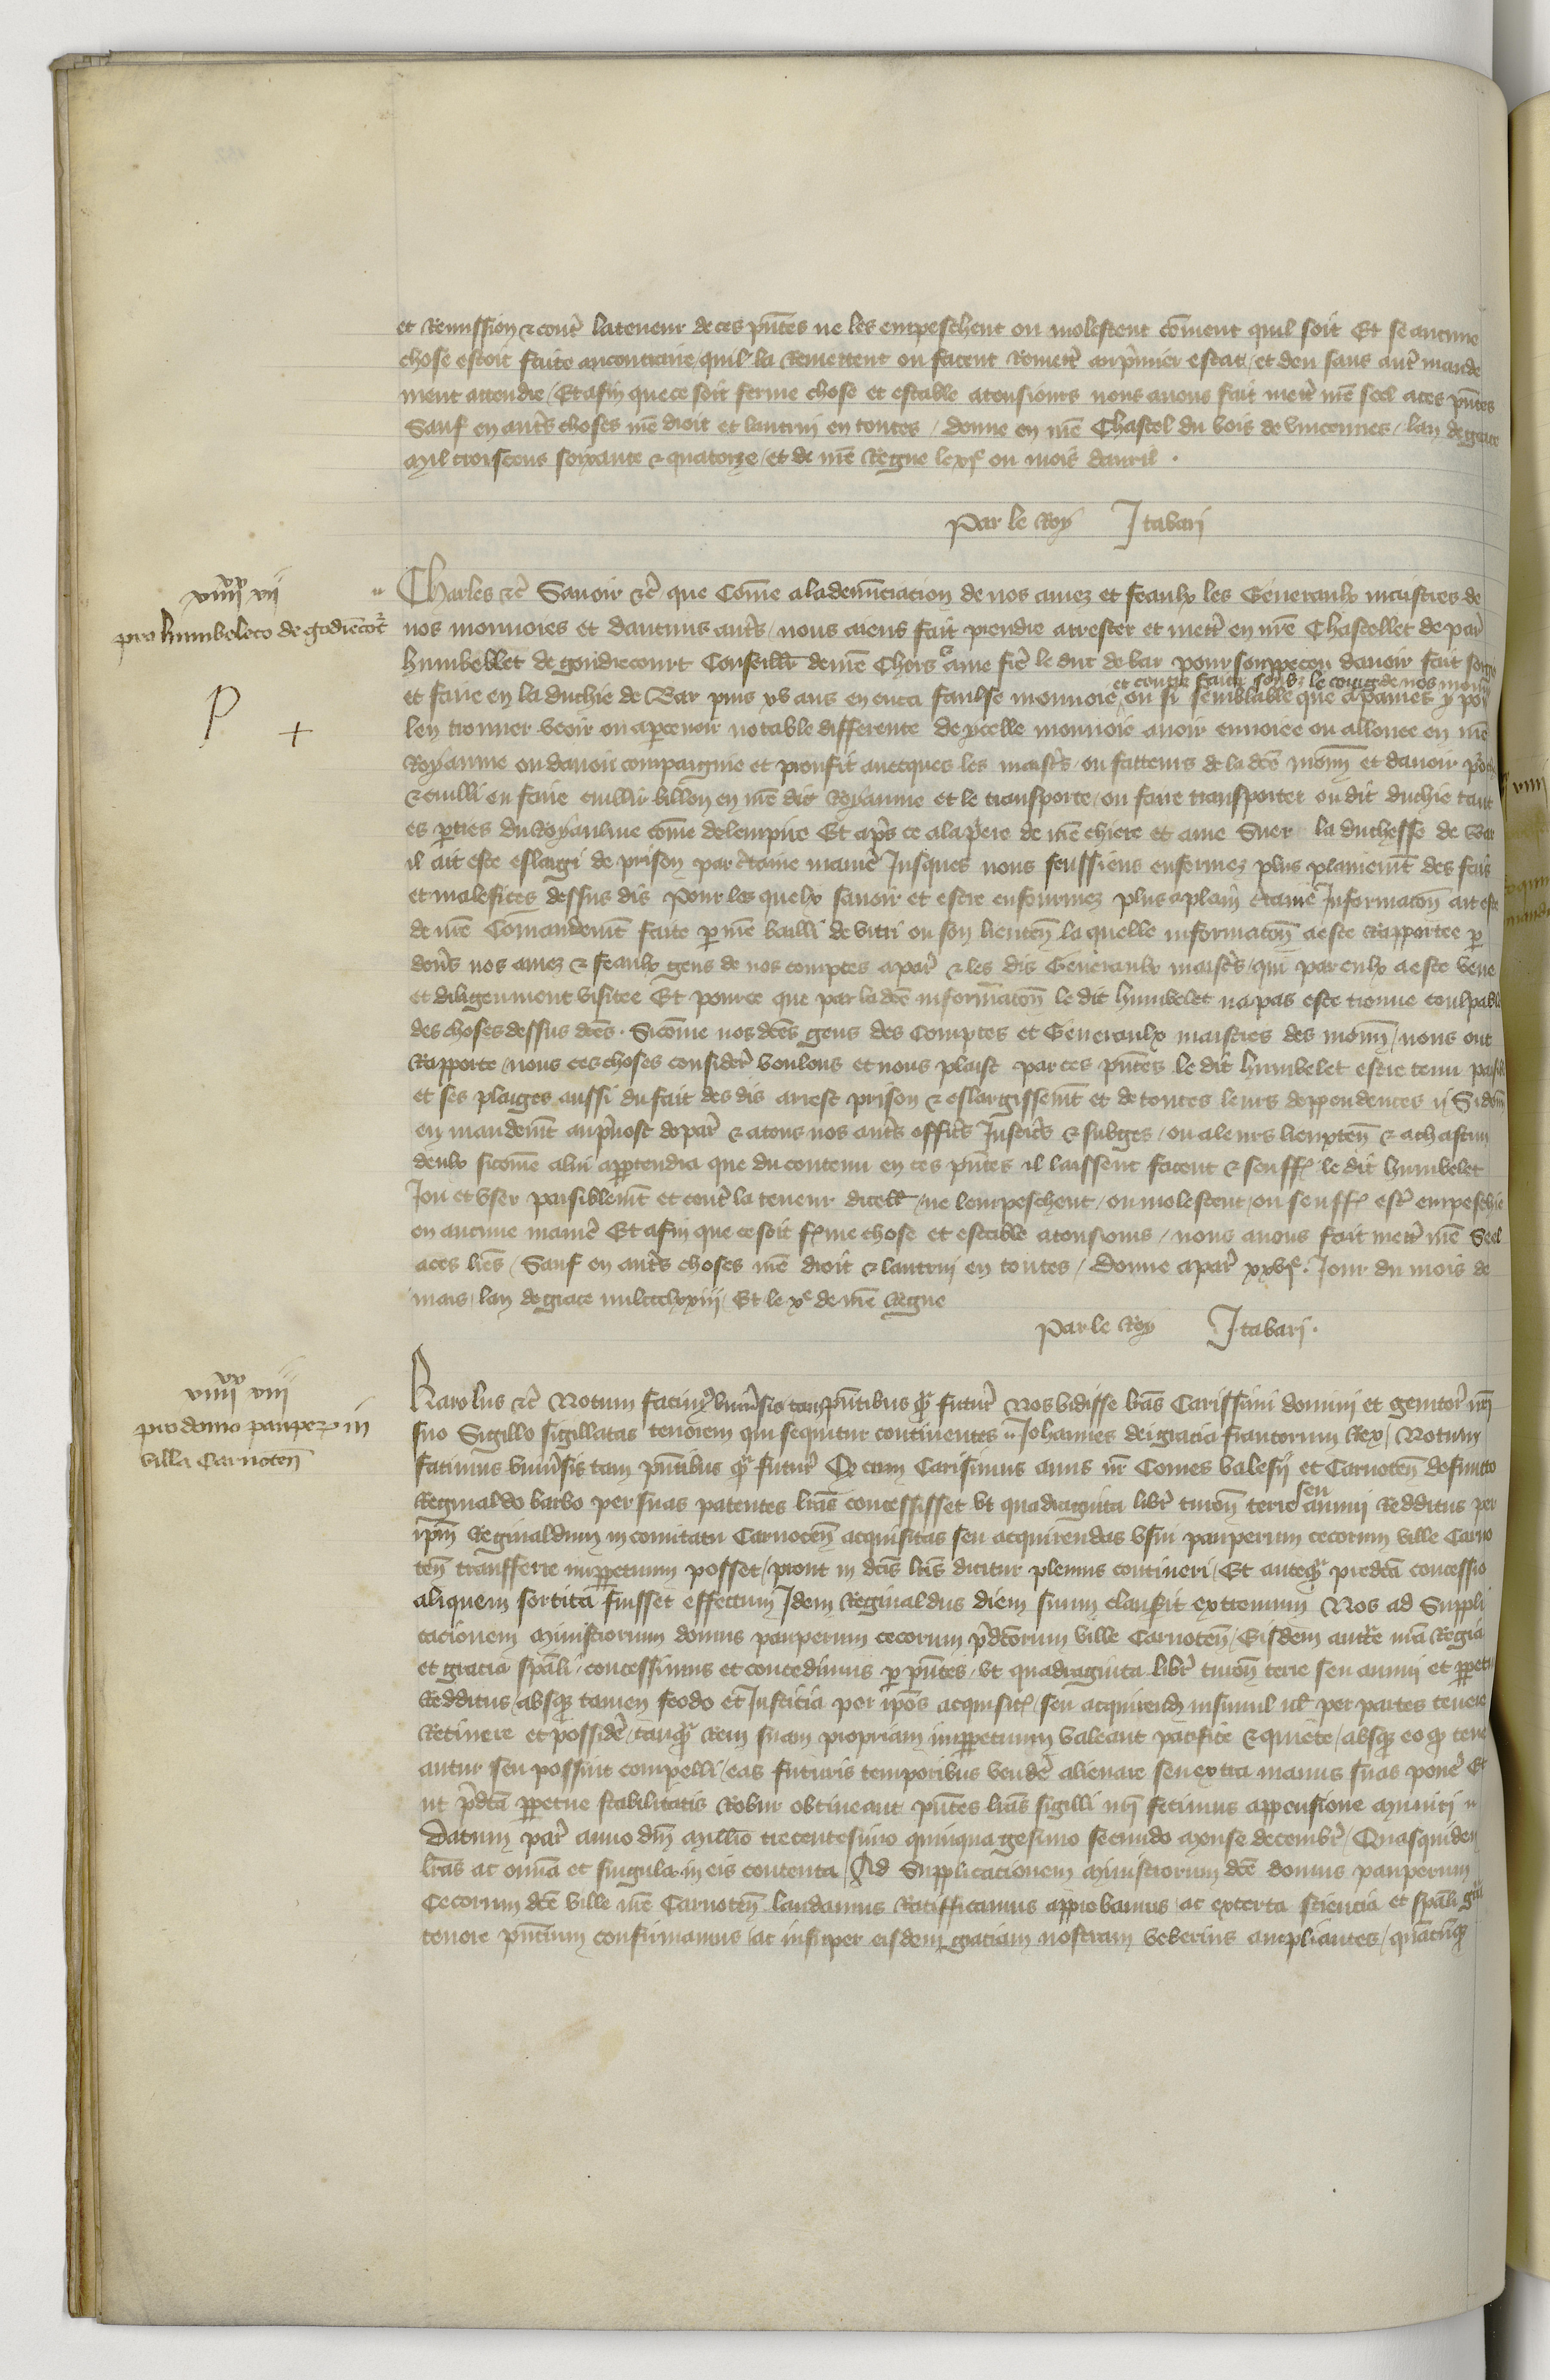 et Remission & cont̃ la teneur de ces pñtes ne les empeschent ou molestent cõment quil soit Et se aucune
chose estoit faite au contraire / quil la Remettent ou facent Remett̃ au p̃mier estat / et deu sans aut̃ mande
ment attendre / Et afin que ce soit ferme chose et estable a tousiours nous avons fait mett̃ nr̃e seel a ces pñtes
Sauf en aut̃s choses nr̃e droit et lautruy en toutes / donne en nr̃e Chastel du bois de vincennes / lan de grace
Mil trois cens soixante & quatorze / et de nr̃e Regne le xjͤ ou mois davril .
Par le Roy J tabari
viiˣˣ vii
pro humbeleto de godr̃ecoʳt
P +
Charles &c̃ Savoir &c̃ que Cõme a la denũciacion de nos amez et feaulx les Generaulx maistres de
nos monnoies et daucuns aut̃s / nous aiens fait prendre arrester et mett̃ en nr̃e Chastellet de par̃
humbellet de gondrecourt Conseill̃r de nr̃e Chers & ame fr̃e le duc de bar pour souppecon davoir fait forgie
et contre faire soubz le coing de nos monñ
et faire en la duchie de Bar puis xv ans en enca faulse monnoie ou si semblable que a paines y poʳ
len trouver veoir ou ap̱cevoir notable difference de ycelle monnoie avoir envoiee ou allouee en nr̃e
Royaume ou davoir compaignie et proufit avecques les maist̃s ou facteurs de la dc̃e monñ et davoir
& cuilli ou faire cuillir billon en nr̃e dit Royaume et le transporte / ou faire transporter ou dit duchie tant
es p̱ties du Royaulme cõme de lempire Et ap̃s ce a la p̱ere de nr̃e chiere et ame Suer la duchesse de Bar
il ait este eslargi de prison par c̃taine manie᷑ Jusques nous feussiens enformez plus plainem̃t des fais
et malefices dessus dis Pour les quelx savoir et estre enfourmez plus a plain c̃taine Informacoñ ait este
de nr̃e Comandem̃t faite p̱ nr̃e bailli de vitri ou son lieuteñ la quelle informacoñ a este Rapportee p̱
dev̱s nos amez & feaulx gens de nos comptes a par̃ & les dis Generaulx maist̃s / qui par eulx a este veue
et diligeument visitee Et pource que par la dc̃e informacoñ le dit humbelet na pas este trouve coulpable
des choses dessus dc̃es . Si cõme nos dc̃es gens des Comptes et Generaulx maistres des monñ / nous ont
Rapporte / nous ces choses consider̃ voulons et nous plaist par ces pñtes le dit humbelet estre tenu paisib
et ses pleiges aussi du fait des dis arrest prison & eslargissem̃t et de toutes leurs deppendences Si doñ
en mandem̃t au p̃vost de par̃ & a tous nos aut̃s offic̃s Justic̃s & subges / ou a leurs lieuxteñ & a chascun
deulx si cõme a lui app̱tendra que du contenu en ces pñtes il laissent facent & seuff̃ le dit humbelet
Joir et user paisiblem̃t et cont̃ la teneur dicell̃ / ne lempeschent / ou molestent ou seuff̃ est̃ empeschie
en aucune manie᷑ Et afin que ce soit f̱me chose et estable a tousiours / nous avons fait mett̃ nr̃e Seel
a ces lr̃es / Sauf en aut̃s choses nr̃e droit & lautruy en toutes / Donne a par̃ xxvjͤ . Jour du mois de
mars / lan de grace mil ccclxxiii / Et le xͤ de nr̃e Regne
Par le Roy J. tabari .
viiˣˣ viii
pro domo pauper̃ in
villa Carnoteñ
Karolus &c̃ Notum facimꝰ univ̱sis tam pñtibus qʳ̃ futur̃ Nos vidisse lr̃as Carissimi domini et genitor̃ nr̃i
suo Sigillo sigillatas tenorem qui sequitur continentes Johannes dei gracia francorum Rex / Notum
facimus univ̱sis tam pñtibus qʳ̃ futur̃ Qꝰ cum Carisimus avus nr̃ Comes valesij et Carnoteñ defuncto
Reginaldo barbo per suas patentes lr̃as concessisset ut quadraginta libr̃ turoñ terre seu annui Redditus per
ip̃m Reginaldum in comitatu Carnoteñ acquisitas seu acquirendas usui pauperum cecorum ville Carno
teñ transferre imp̱petuum posset / prout in dc̃is lr̃is dicitur plenius contineri / Et anteqʳ̃ predc̃a concessio
aliquem sortita fuisset effectum Idem Reginaldus diem suum clausit extremum Nos ad Suppli
cacionem Ministrorum domus pauperum cecorum p̃dc̃orum ville Carnoteñ / Eisdem auctr̃e nr̃a Regia
et gracia sp̃ali / concessimus et concedimus p̱ pñtes / ut quadraginta libr̃ turoñ terre seu annui et p̱petui
Redditus / absqꝫ tamen feodo et Justicia per ip̃os acquisit̃ / seu acquirend̃ insimul ul̃ per partes tenere
Retinere et posside᷑ / tanqʳ̃ Rem suam propriam imp̱petuum valeant pacifice & quiete / absqꝫ eo qꝰ tene
antur seu possint compelli / eas futuris temporibus vende᷑ alienare seu extra manus suas pone᷑ Et
ut p̃dc̃a p̱petue stabilitatis Robur obtineant pñtes lr̃as sigilli nr̃i fecimus appensione Muniri
Datum par̃ anno dñi Millõ trecentesimo quinquagesimo secundo mense decembr̃ / Quasquidem
lr̃as ac om̃ia et singula in eis contenta / Ad Supplicacionem Ministrorum dc̃e domus pauperum
Cecorum dc̃e ville nr̃e Carnoteñ laudamus Ratifficamus approbamus / ac ex certa sciencia et sp̃ali grã
tenore pñcium confirmamus / ac insuper eisdem graciam nostram uberius ampliantes /